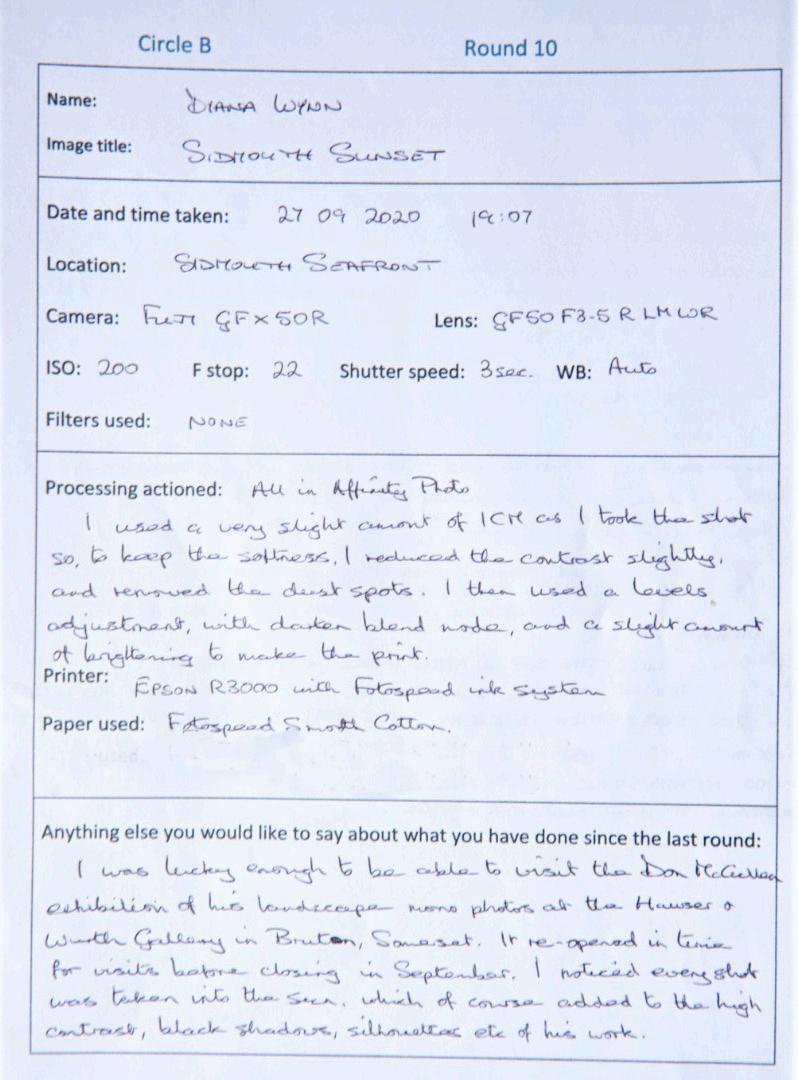 Circle B Round 10
Name: DIANA WYNN
Image title: SIDMOUTH SUNSET
Date and time taken: 27 09 2020 19:07
Location: SIDMOUTH SEAFRONT
Camera: FUJI GFX 50R Lens: GF50 F3-5 R LM WR
ISO: 200 F stop: 22 Shutter speed: 3sec. WB: Auto
Filters used: NONE
Processing actioned: All in Affinity Photo
I used a very slight amount of ICM as I took the shot
so, to keep the softness, I reduced the contrast slightly,
and removed the dust spots. I then used a levels
adjustment, with darken blend mode, and a slight amount
of brightening to make the print.
Printer: EPSON R3000 with Fotospeed ink system
Paper used: Fotospeed Smooth Cotton.
Anything else you would like to say about what you have done since the last round:
I was lucky enough to be able to visit the Don McCullen
exhibition of his landscape mono photos at the Hauser &
Wurth Gallery in Bruton, Somerset. It re-opened in time
for visits before closing in September. I noticed every shot
was taken into the sun, which of course added to the high
contrast, black shadows, silhouettes etc of his work.